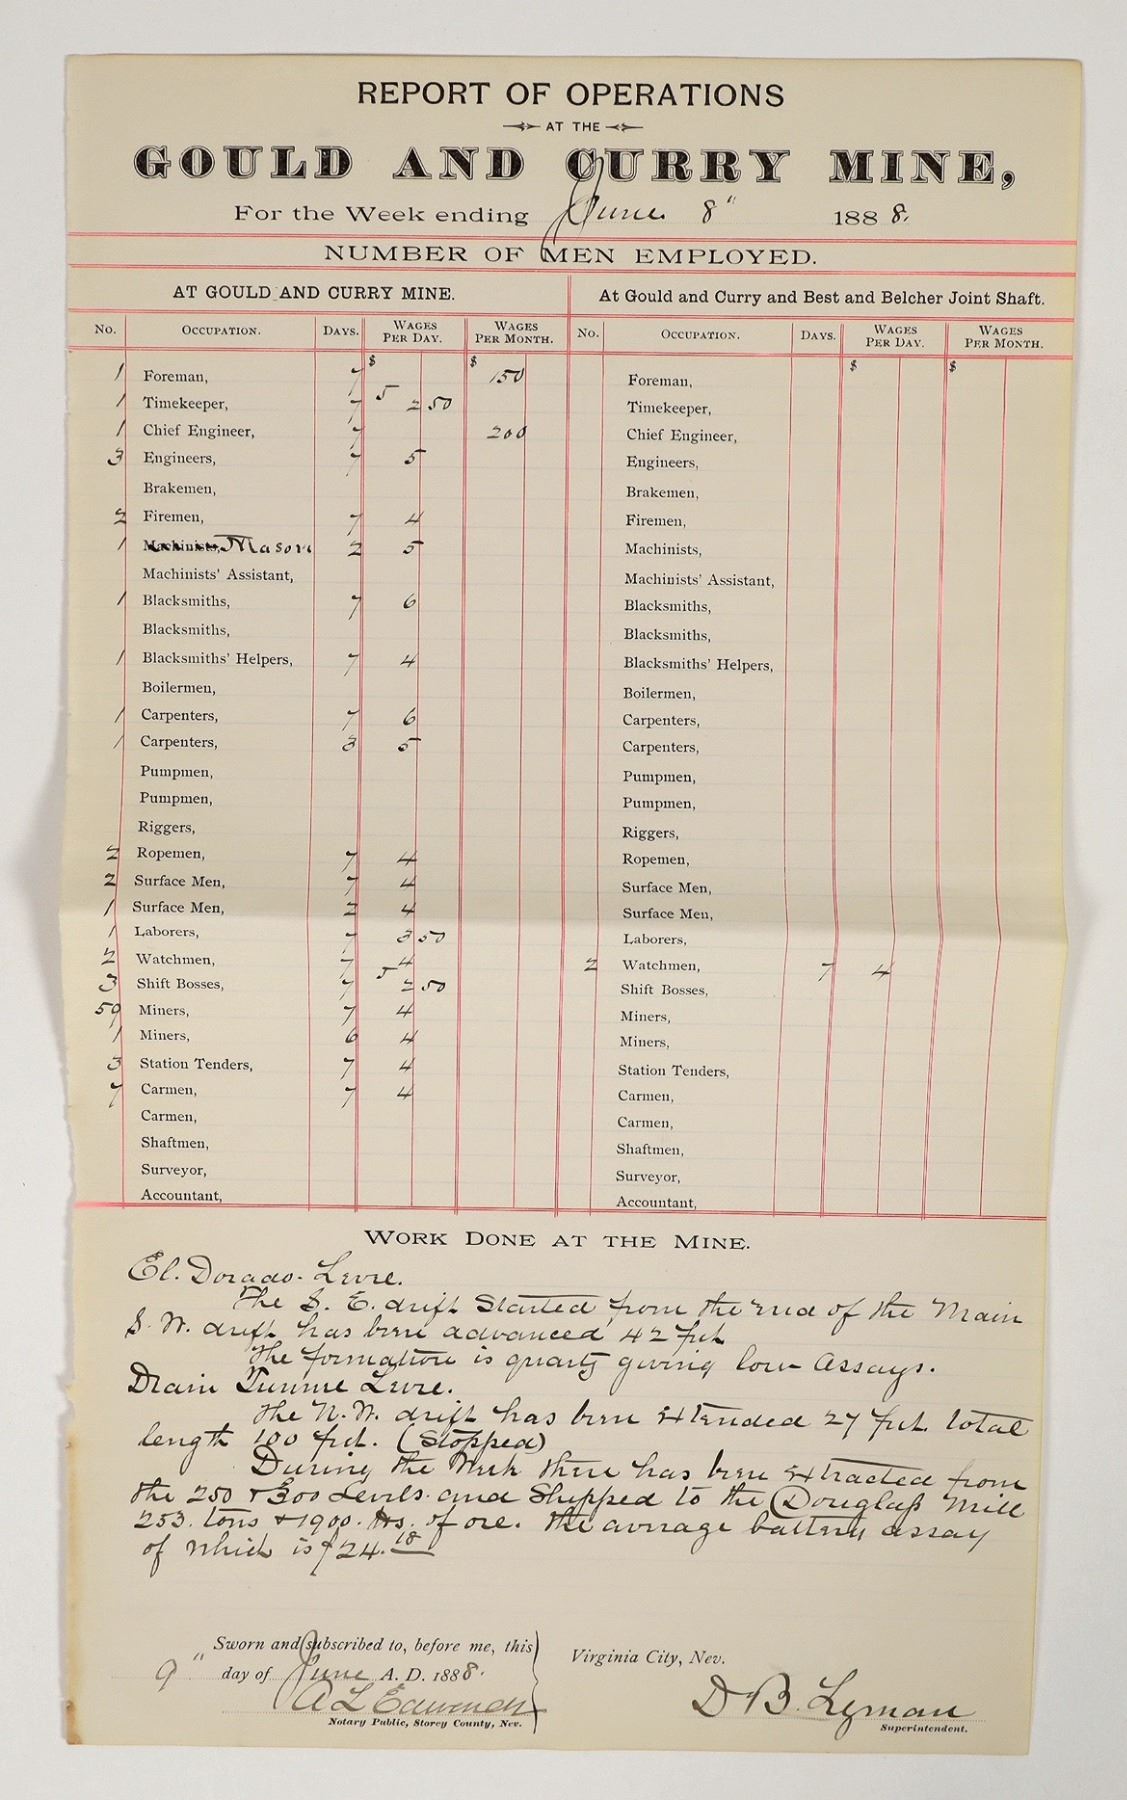 REPORT OF OPERATIONS
AT THE
GOULD AND CURRY MINE,
For the Week ending June 8" 1888.
NUMBER OF MEN EMPLOYED.
AT GOULD AND CURRY MINE. At Gould and Curry and Best and Belcher Joint Shaft.
No. OCCUPATION. DAYS. WAGES PER DAY. WAGES PER MONTH. No. OCCUPATION. DAYS. WAGES PER DAY. WAGES PER MONTH.
$ $ $ $
1 Foreman, 7 150 Foreman,
1 Timekeeper, 7 5 2 50 Timekeeper,
1 Chief Engineer, 7 200 Chief Engineer,
3 Engineers, 7 5 Engineers,
Brakemen, Brakemen,
2 Firemen, 7 4 Firemen,
1 Machinists, Mason 2 5 Machinists,
Machinists' Assistant, Machinists' Assistant,
1 Blacksmiths, 7 6 Blacksmiths,
Blacksmiths, Blacksmiths,
1 Blacksmiths' Helpers, 7 4 Blacksmiths' Helpers,
Boilermen, Boilermen,
1 Carpenters, 7 6 Carpenters,
1 Carpenters, 3 5 Carpenters,
Pumpmen, Pumpmen,
Pumpmen, Pumpmen,
Riggers, Riggers,
2 Ropemen, 7 4 Ropemen,
2 Surface Men, 7 4 Surface Men,
1 Surface Men, 2 4 Surface Men,
1 Laborers, 7 3 50 Laborers,
2 Watchmen, 7 4 2 Watchmen, 7 4
3 Shift Bosses, 7 5 2 50 Shift Bosses,
59 Miners, 7 4 Miners,
1 Miners, 6 4 Miners,
3 Station Tenders, 7 4 Station Tenders,
7 Carmen, 7 4 Carmen,
Carmen, Carmen,
Shaftmen, Shaftmen,
Surveyor, Surveyor,
Accountant, Accountant,
WORK DONE AT THE MINE.
El. Dorado. Level.
The S. E. drift Started from the end of the Main
S. W. drift has been advanced 42 feet
The formation is quartz giving low assays.
Drain Tunnel Level.
The N. W. drift has been extended 27 feet. total
length 100 feet. (Stopped)
During the Week there has been extracted from
the 250 & 300 Levels. and Shipped to the Douglass Mill
253. tons & 1900. lbs. of ore. the average battery assay
of which is $24.18
Sworn and subscribed to, before me, this
9" day of June A. D. 1888.
Virginia City, Nev.
A L Edwards
Notary Public, Storey County, Nev.
D B. Lyman
Superintendent.